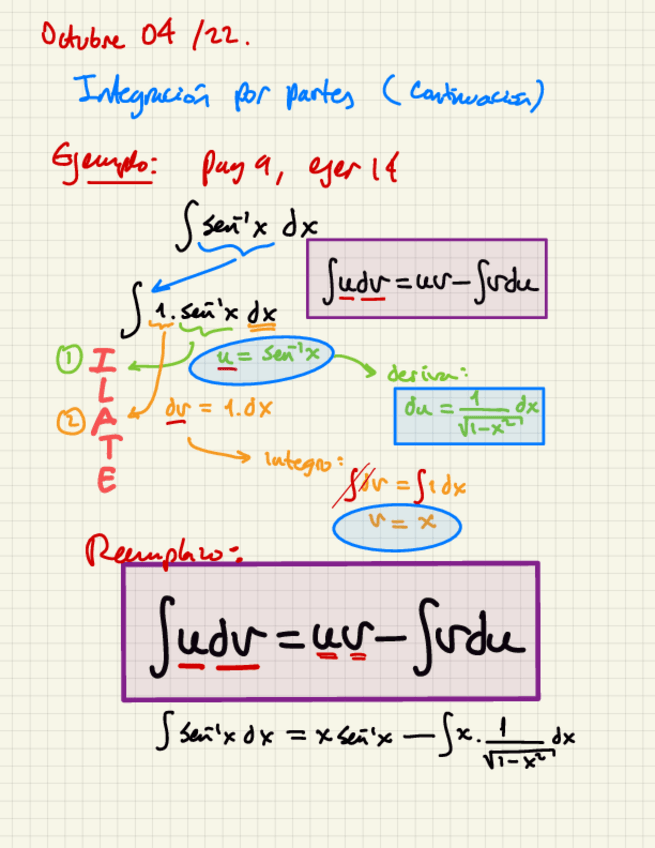 Octubre 04 /22.
Integración por partes (continuación)
Ejemplo: pag 9, ejer 14
∫ sen⁻¹x dx
∫udv = uv − ∫vdu
∫ 1. sen⁻¹x dx
① I L A T E
u = sen⁻¹x
deriva:
du = 1/√(1−x²) dx
② dv = 1.dx
integro:
∫dv = ∫1 dx
v = x
Reemplazo:
∫udv = uv − ∫vdu
∫ sen⁻¹x dx = x sen⁻¹x − ∫x. 1/√(1−x²) dx